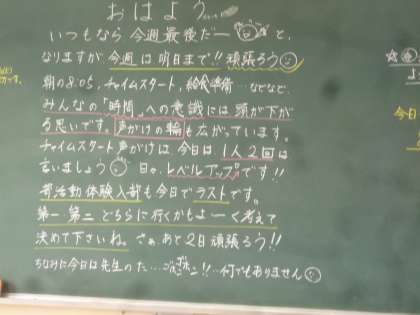 おはよう……
いつもなら今週最後だー と、
なりますが今週は明日まで!!頑張ろう
朝の8:05、チャイムスタート、給食準備…などなど、
みんなの「時間」への意識には頭が下が
る思いです。声がけの輪も広がっています。
チャイムスタート声がけは、今日は1人2回は
言いましょう 日々、レベルアップです!!
部活動体験入部も今日でラストです。
第一 第二 どちらに行くかもよーく考えて
決めて下さいね。さぁあと2日頑張ろう!!
ちなみに今日は先生のた…ゴホッ ゴホン!!…何でもありません
今日